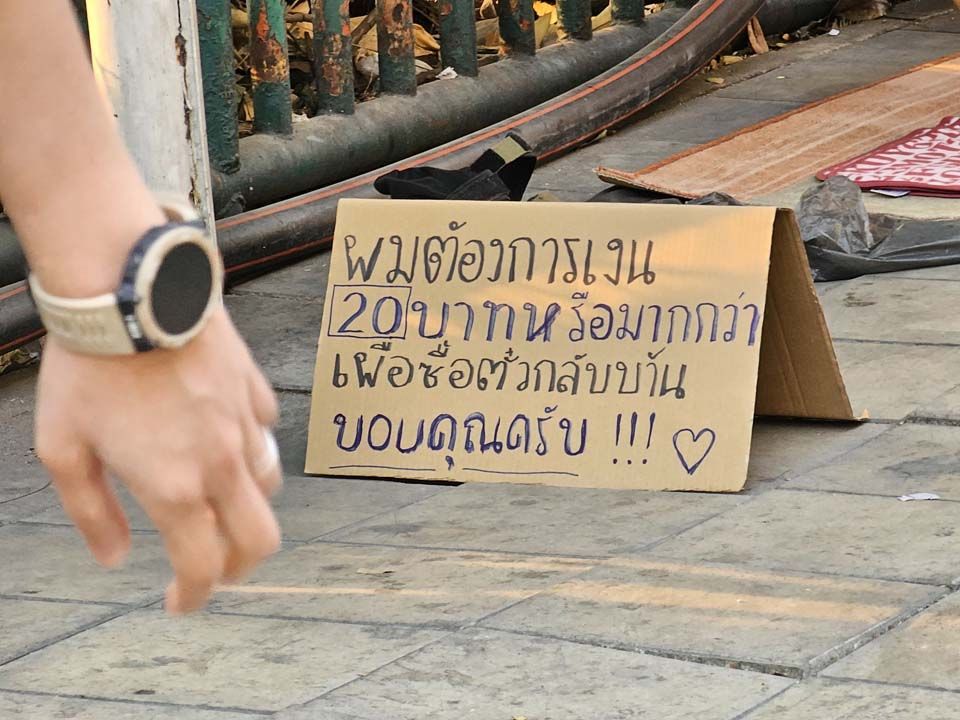 ผมต้องการเงิน
20 บาทหรือมากกว่า
เผื่อซื้อตั๋วกลับบ้าน
ขอบคุณครับ !!! ♡